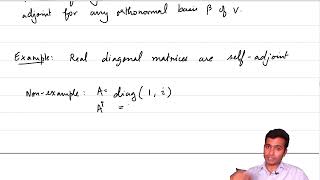 adjoint for any orthonormal basis β of V.
Example: Real diagonal matrices are self-adjoint
Non-example: A = diag(1, i)
A† =